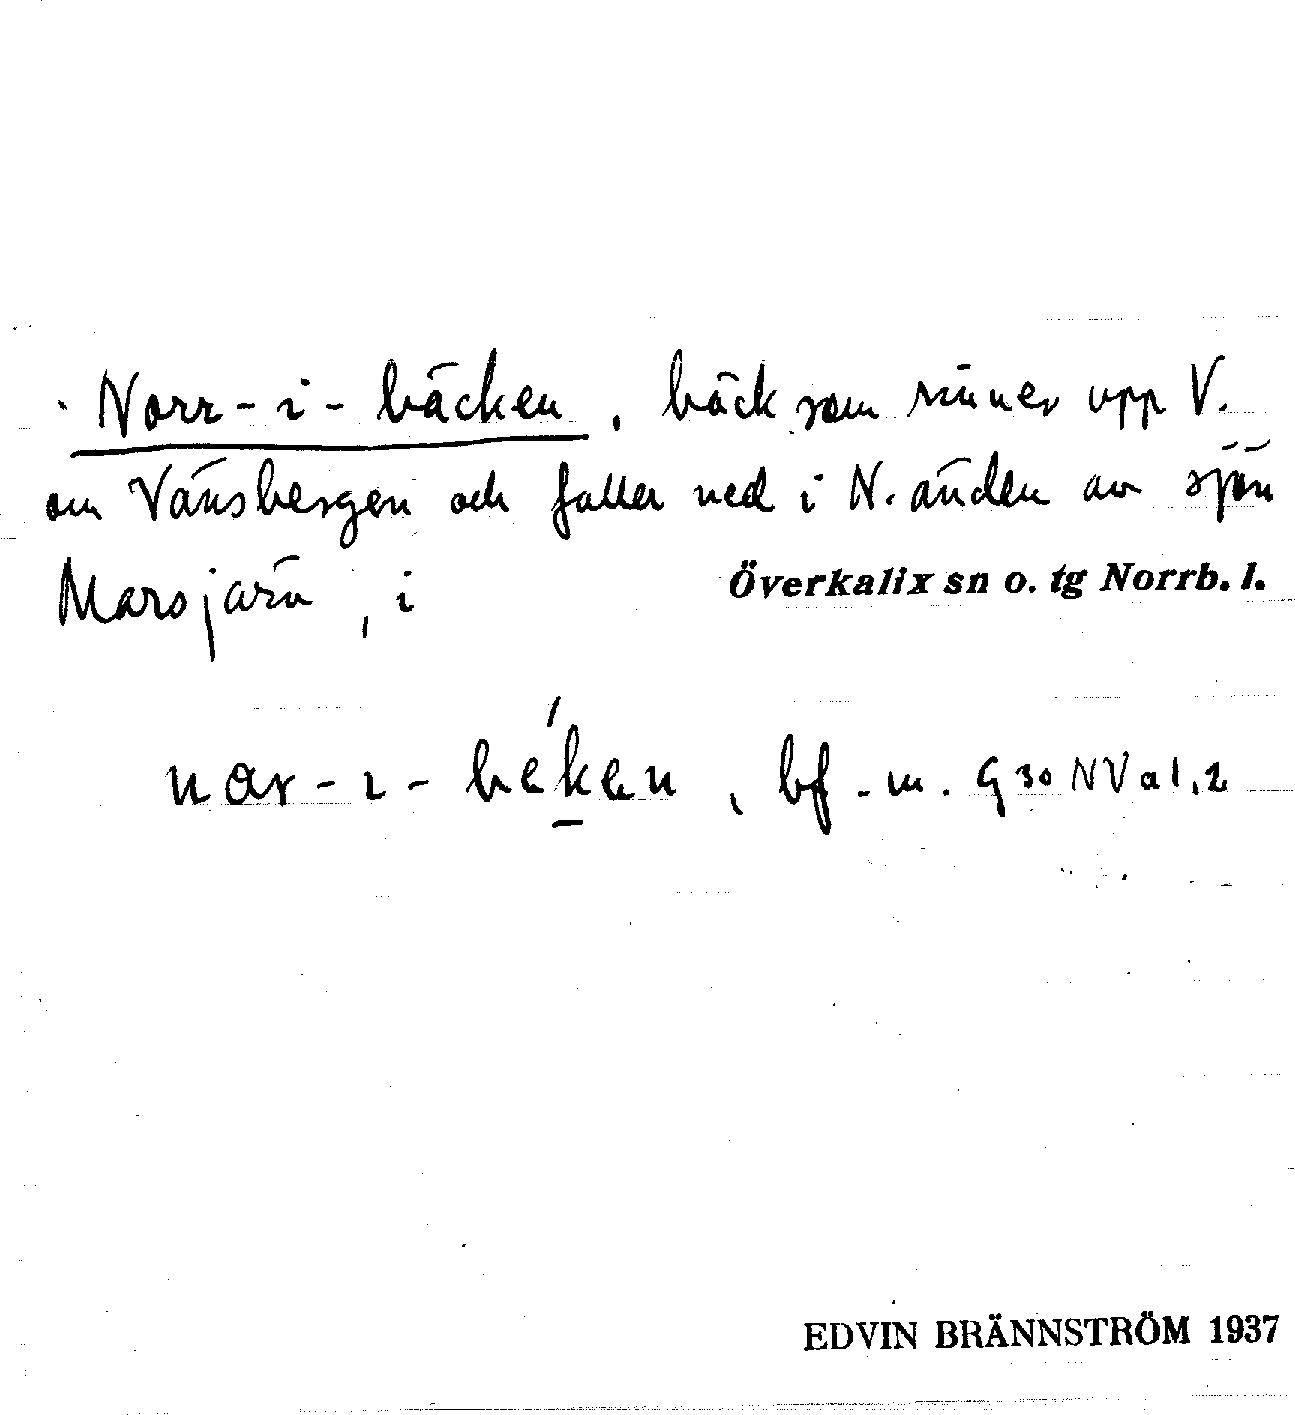 Norr-i-bäcken, bäck som rinner upp V.
om Vänsbergen och faller ned i N. änden av sjön
Marsjärv, i Överkalix sn o. tg Norrb. l.
nar-ı-béken, bf. m. G 30 NV a 1, 2
EDVIN BRÄNNSTRÖM 1937